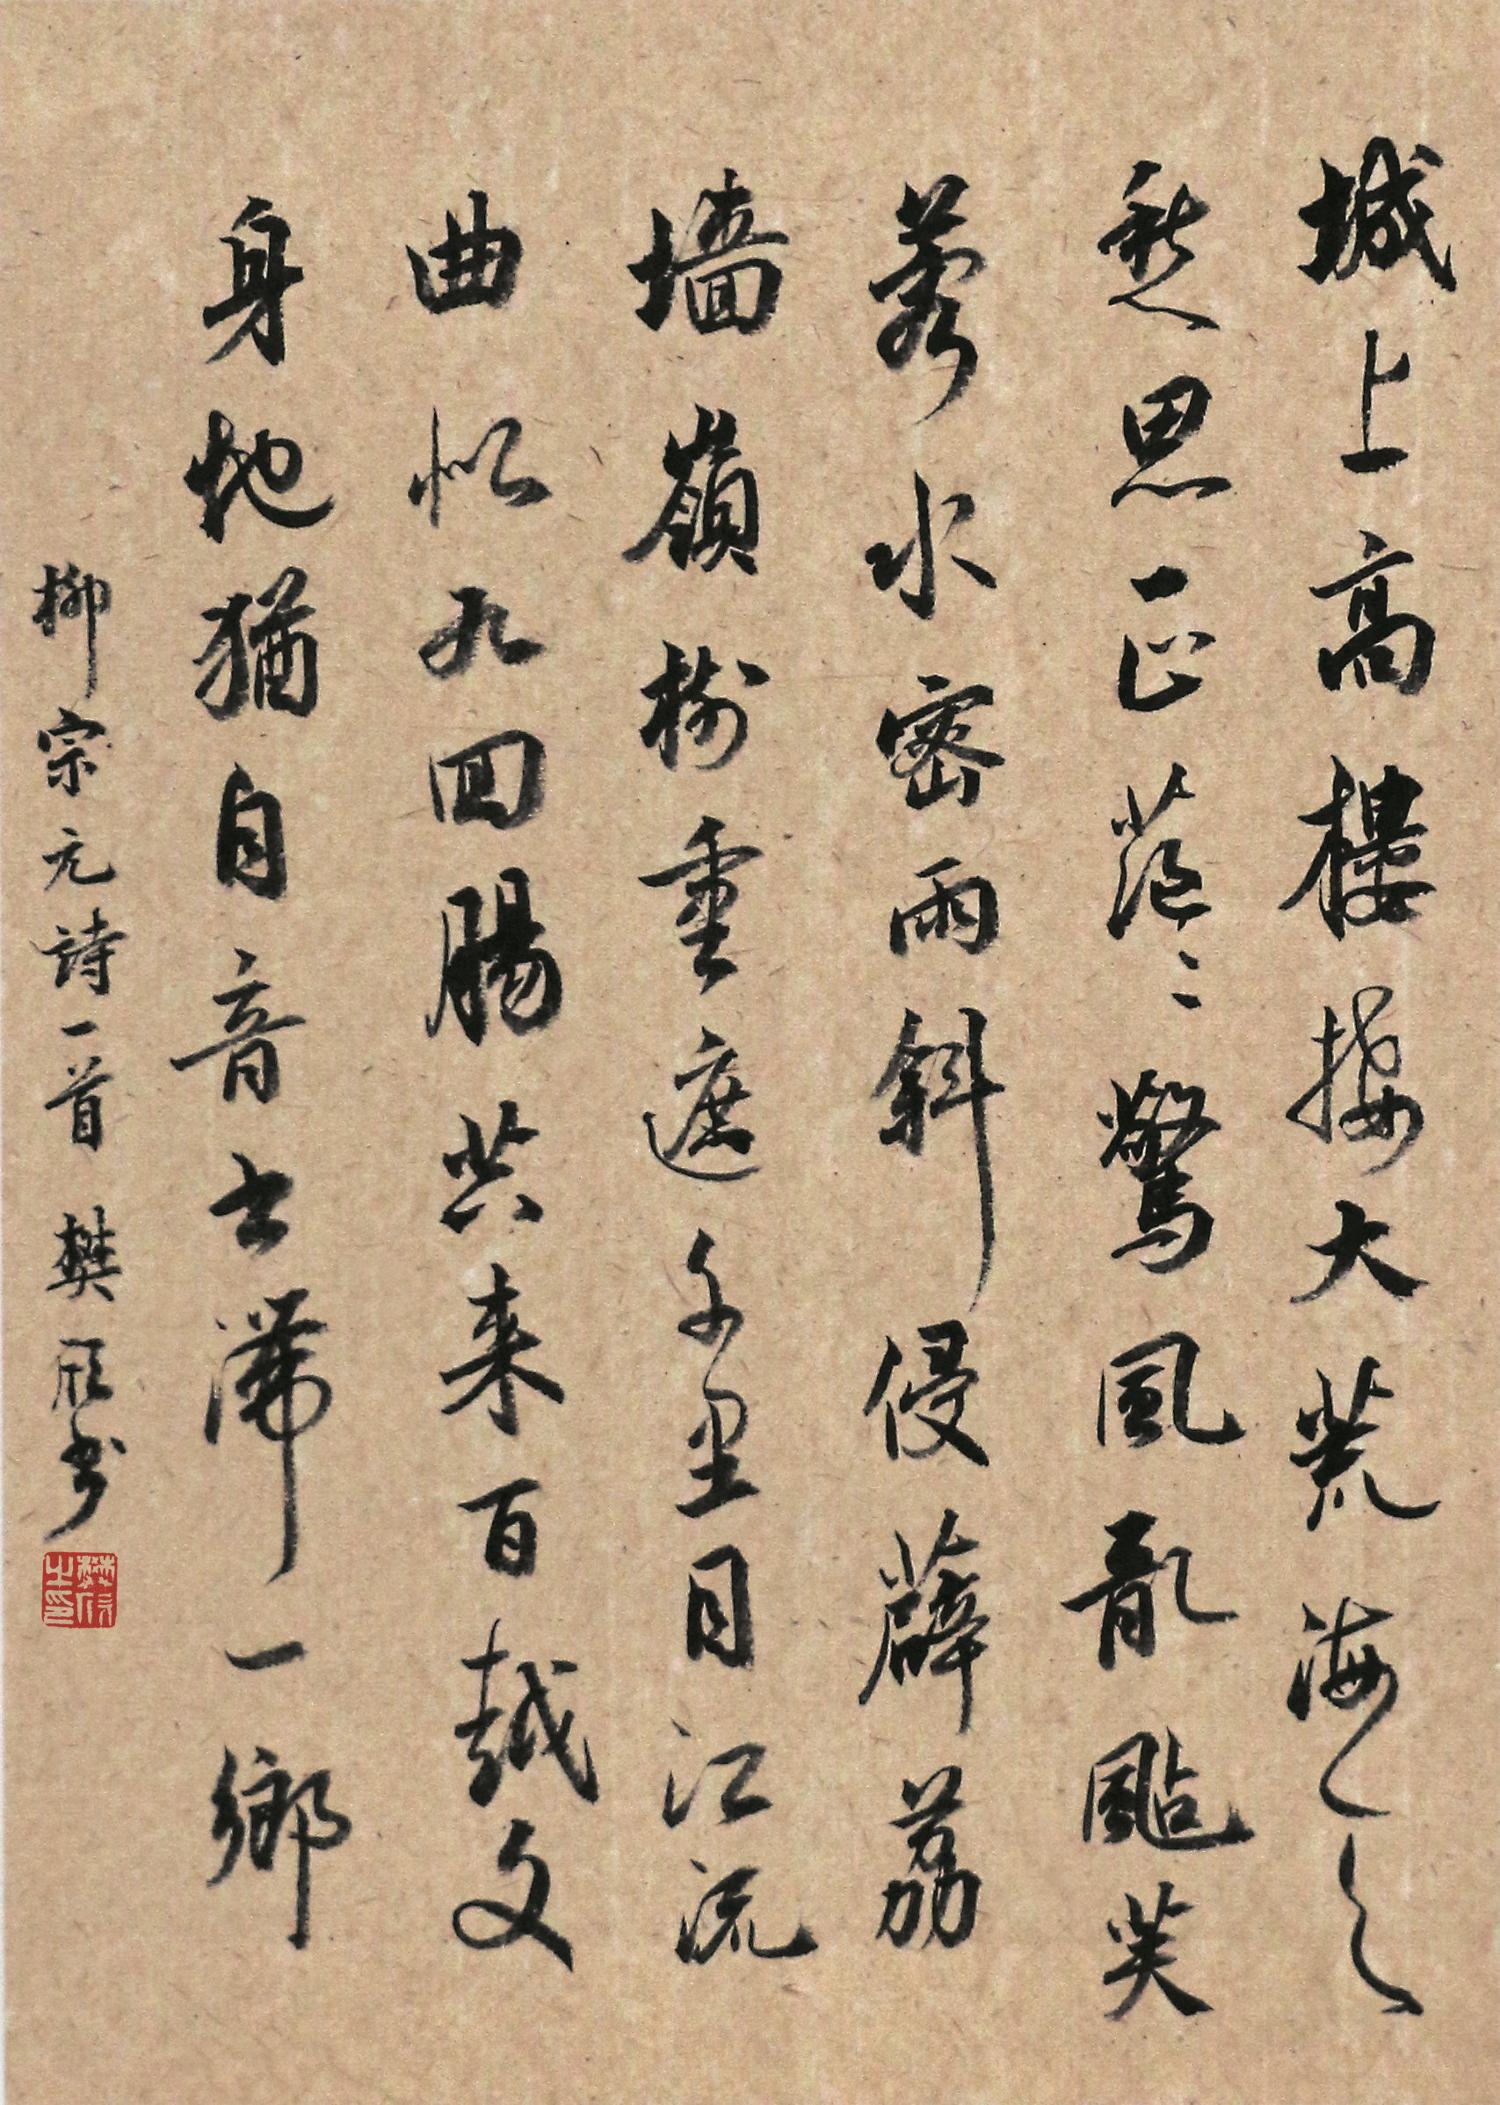 城上高樓接大荒海天
愁思正茫〻驚風亂颭芙
蓉水密雨斜侵薜荔
墙嶺樹重遮千里目江流
曲似九回腸共来百越文
身地猶自音书滯一鄉
柳宗元詩一首 樊书